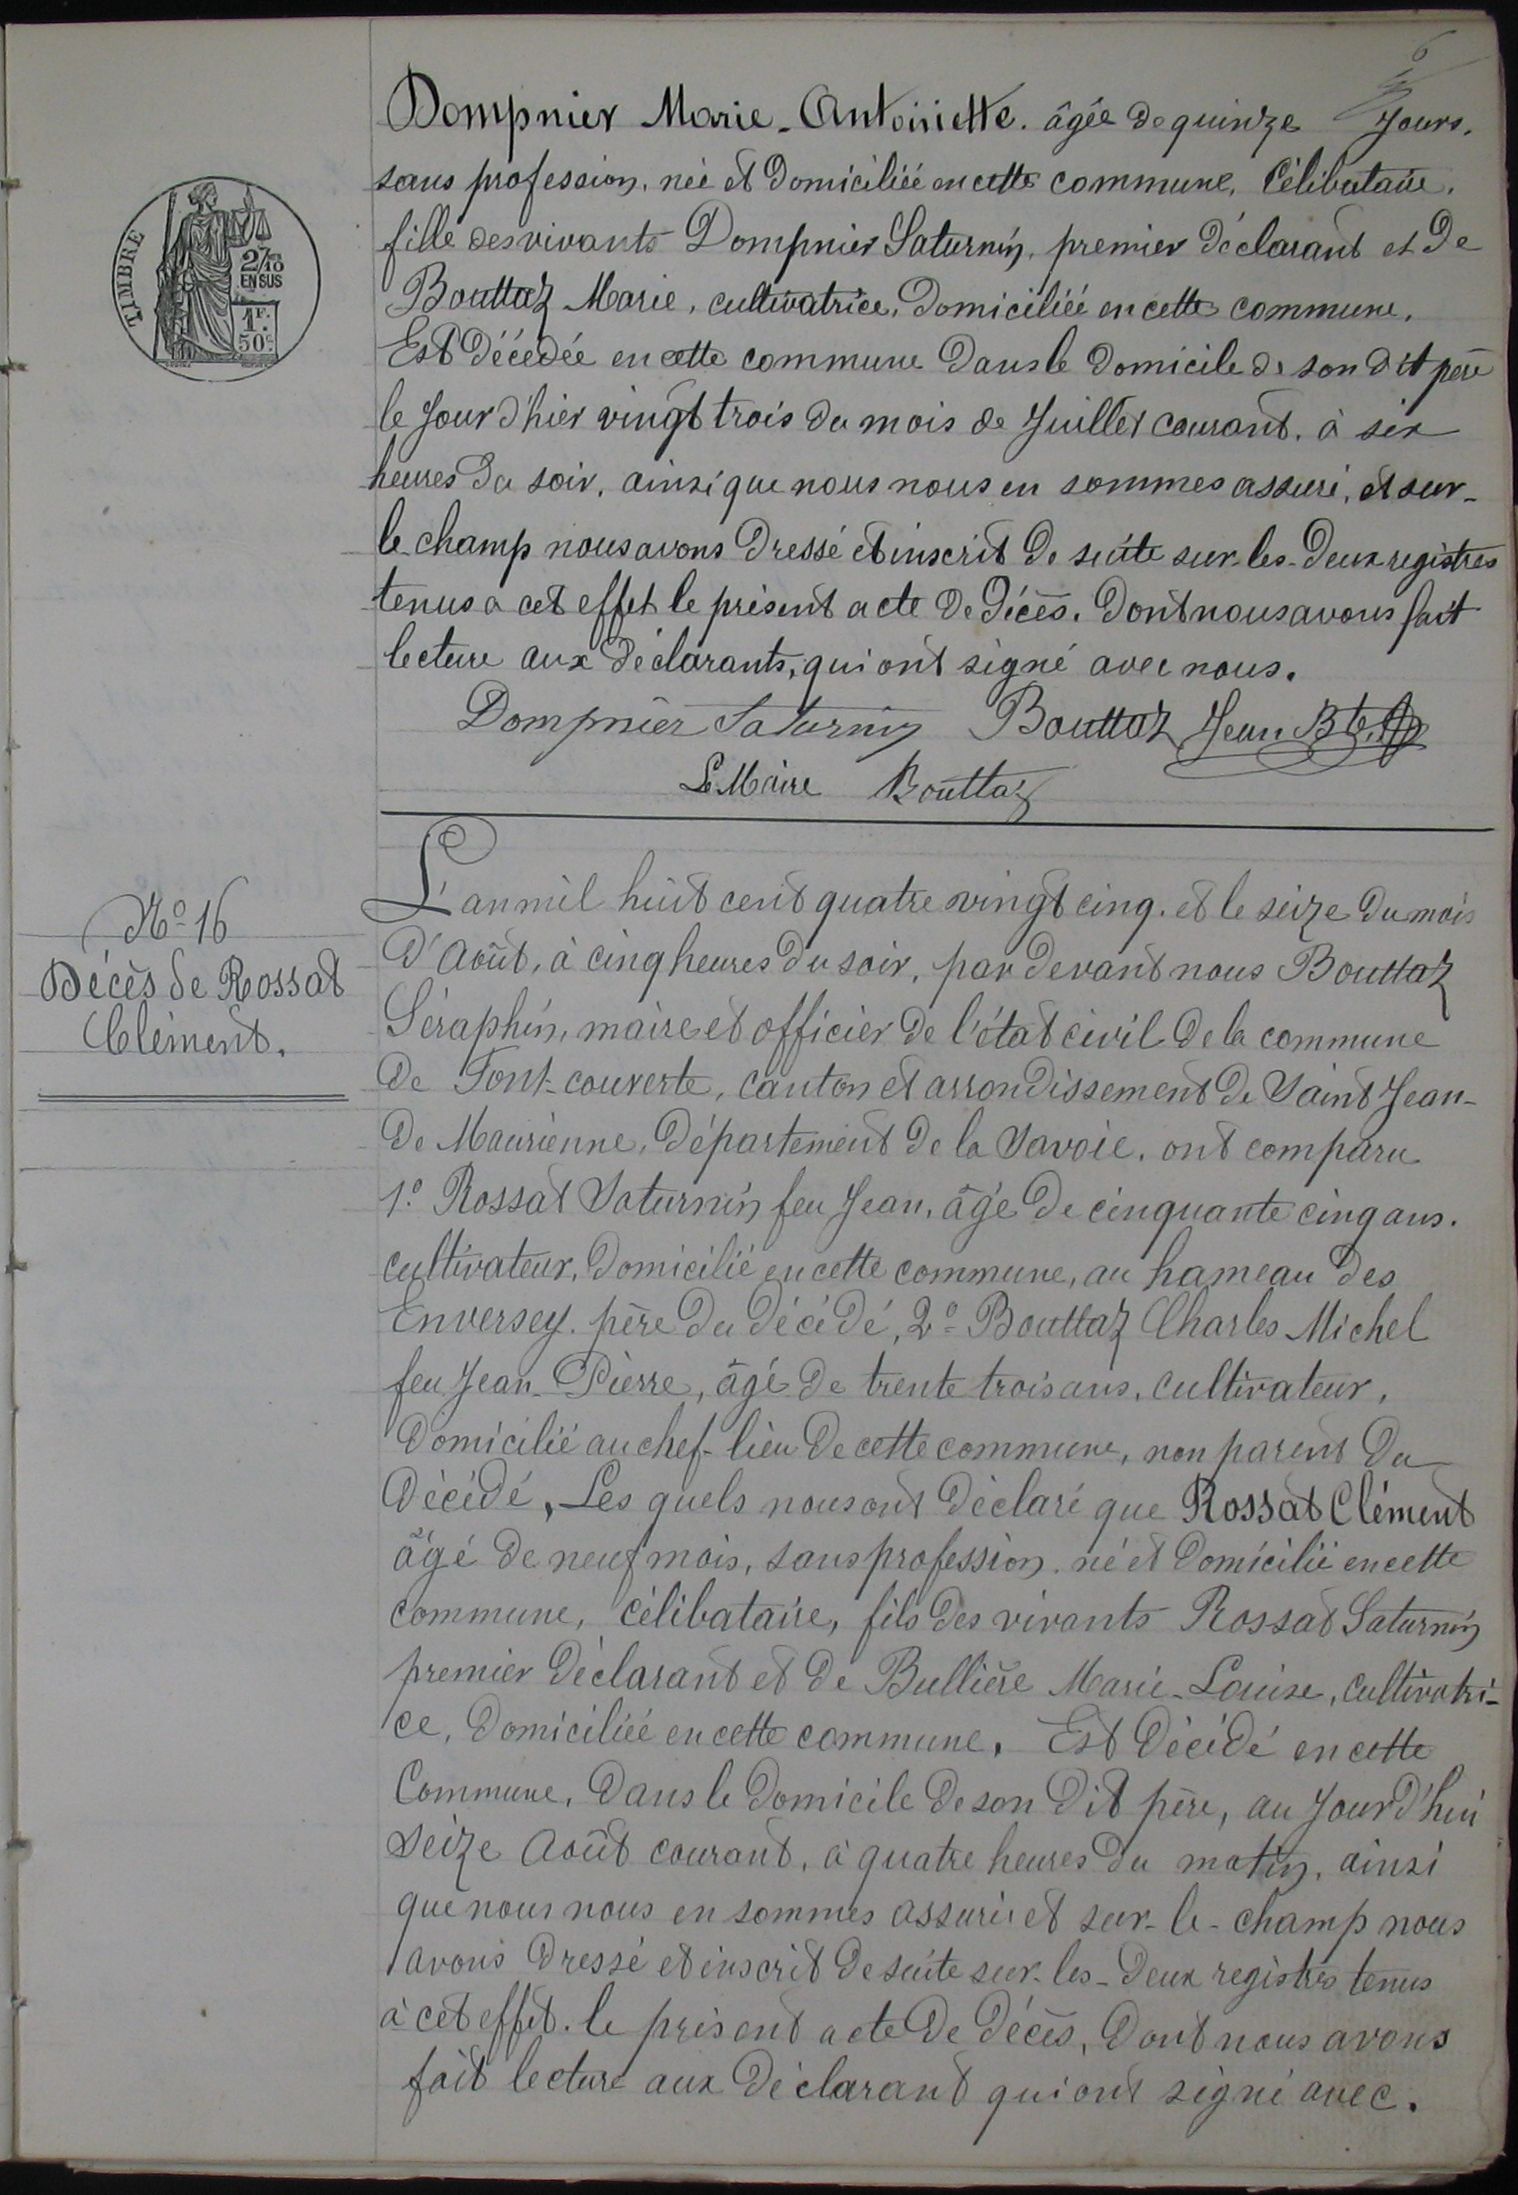 6
Dompnier Marie-Antoinette. âgée de quinze Jours.
sans profession, née et domiciliée en cette commune, Célibataire.
fille des vivants Dompnier Saturnin, premier déclarant et de
Bouttaz Marie, cultivatrice, domiciliée en cette commune.
Est décédée en cette commune dans le domicile de son dit père
le jour d'hier vingt trois du mois de Juillet courant, à six
heures du soir, ainsi que nous nous en sommes assuré, et sur-
le-champ nous avons dressé et inscrit de suite sur-les-deux registres
tenus a cet effet le présent acte de décès. Dont nous avons fait
lecture aux déclarants, qui ont signé avec nous.
Dompnier Saturnin Bouttaz Jean Bte
Le Maire Bouttaz
TIMBRE
2/10 mes
EN SUS
1F.
50c.
No 16
Décès de Rossat
Clément.
L'an mil huit cent quatre vingt cinq. et le seize du mois
d'Août, à cinq heures du soir, par devant nous Bouttaz
Séraphin, maire et officier de l'état civil de la commune
de Font-couverte, canton et arrondissement de Saint Jean-
de Maurienne, département de la Savoie, ont comparu
1o. Rossat Saturnin feu Jean, âgé de cinquante cinq ans.
cultivateur, domicilié en cette commune, au hameau des
Enversey. père du décédé, 2o Bouttaz Charles Michel
feu Jean-Pierre, âgé de trente trois ans, cultivateur,
domicilié au chef-lieu de cette commune, non parent du
décédé, Les quels nous ont déclaré que Rossat Clément
âgé de neuf mois, sans profession. né et domicilié en cette
commune, célibataire, fils des vivants Rossat Saturnin
premier déclarant et de Bullière Marie-Louise, cultivatri-
ce, domiciliée en cette commune. Est décédé en cette
Commune, dans le domicile de son dit père, au jour d'hui
seize Août courant, à quatre heures du matin, ainsi
que nous nous en sommes assuré et sur-le-champ nous
avons dressé et inscrit de suite sur-les-deux registres tenus
à cet effet. le présent acte de décès, dont nous avons
fait lecture aux déclarant qui ont signé avec.